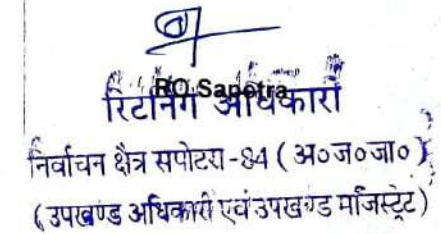 RO Sapotra
रिटर्निंग अधिकारी
निर्वाचन क्षैत्र सपोटरा-84 (अ०ज०जा०)
(उपखण्ड अधिकारी एवं उपखण्ड मजिस्ट्रेट)